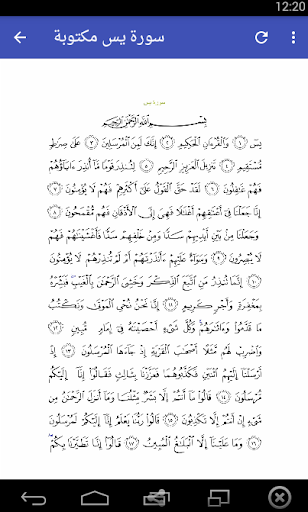 12:20
سورة يس مكتوبة
سورة يس
بِسْمِ اللَّهِ الرَّحْمَٰنِ الرَّحِيمِ
يسٓ ١ وَالْقُرْءَانِ الْحَكِيمِ ٢ إِنَّكَ لَمِنَ الْمُرْسَلِينَ ٣ عَلَىٰ صِرَٰطٍ
مُّسْتَقِيمٍ ٤ تَنزِيلَ الْعَزِيزِ الرَّحِيمِ ٥ لِتُنذِرَ قَوْمًا مَّآ أُنذِرَ ءَابَآؤُهُمْ
فَهُمْ غَٰفِلُونَ ٦ لَقَدْ حَقَّ الْقَوْلُ عَلَىٰٓ أَكْثَرِهِمْ فَهُمْ لَا يُؤْمِنُونَ ٧
إِنَّا جَعَلْنَا فِىٓ أَعْنَٰقِهِمْ أَغْلَٰلًا فَهِىَ إِلَى الْأَذْقَانِ فَهُم مُّقْمَحُونَ ٨
وَجَعَلْنَا مِنۢ بَيْنِ أَيْدِيهِمْ سَدًّا وَمِنْ خَلْفِهِمْ سَدًّا فَأَغْشَيْنَٰهُمْ فَهُمْ
لَا يُبْصِرُونَ ٩ وَسَوَآءٌ عَلَيْهِمْ ءَأَنذَرْتَهُمْ أَمْ لَمْ تُنذِرْهُمْ لَا يُؤْمِنُونَ
١٠ إِنَّمَا تُنذِرُ مَنِ اتَّبَعَ الذِّكْرَ وَخَشِىَ الرَّحْمَٰنَ بِالْغَيْبِ فَبَشِّرْهُ
بِمَغْفِرَةٍ وَأَجْرٍ كَرِيمٍ ١١ إِنَّا نَحْنُ نُحْىِ الْمَوْتَىٰ وَنَكْتُبُ
مَا قَدَّمُوا وَءَاثَٰرَهُمْ وَكُلَّ شَىْءٍ أَحْصَيْنَٰهُ فِىٓ إِمَامٍ مُّبِينٍ ١٢
وَاضْرِبْ لَهُم مَّثَلًا أَصْحَٰبَ الْقَرْيَةِ إِذْ جَآءَهَا الْمُرْسَلُونَ ١٣ إِذْ
أَرْسَلْنَآ إِلَيْهِمُ اثْنَيْنِ فَكَذَّبُوهُمَا فَعَزَّزْنَا بِثَالِثٍ فَقَالُوٓا إِنَّآ إِلَيْكُم
مُّرْسَلُونَ ١٤ قَالُوا مَآ أَنتُمْ إِلَّا بَشَرٌ مِّثْلُنَا وَمَآ أَنزَلَ الرَّحْمَٰنُ مِن
شَىْءٍ إِنْ أَنتُمْ إِلَّا تَكْذِبُونَ ١٥ قَالُوا رَبُّنَا يَعْلَمُ إِنَّآ إِلَيْكُمْ لَمُرْسَلُونَ
١٦ وَمَا عَلَيْنَآ إِلَّا الْبَلَٰغُ الْمُبِينُ ١٧ قَالُوٓا إِنَّا تَطَيَّرْنَا بِكُمْ